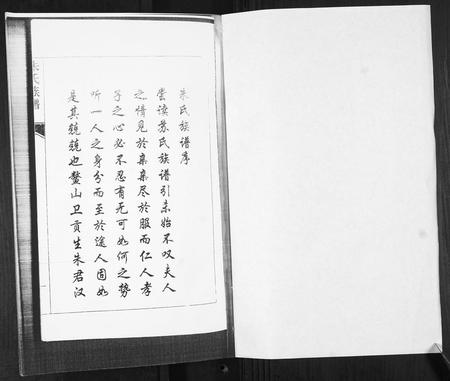 朱氏族譜序
嘗读苏氏族谱引未始不叹夫人
之情見於亲亲尽於服而仁人孝
子之心必不忍有无可如何之势
听一人之身分而至於途人固如
是其兢兢也鳌山卫贡生朱君汉
朱氏族譜